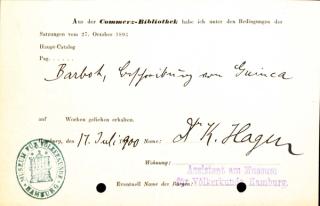 Aus der Commerz-Bibliothek habe ich unter den Bedingungen der
Satzungen vom 27. October 1894
Haupt-Catalog
Pag.
Barbot, Beschreibung von Guinea
auf Wochen geliehen erhalten.
Hamburg, den 17. Juli 1900 Name: Dr K. Hagen
Wohnung:
Assistent am Museum
für Völkerkunde, Hamburg.
Eventuell Name des Bürgen:
MUSEUM FÜR VÖLKERKUNDE
HAMBURG